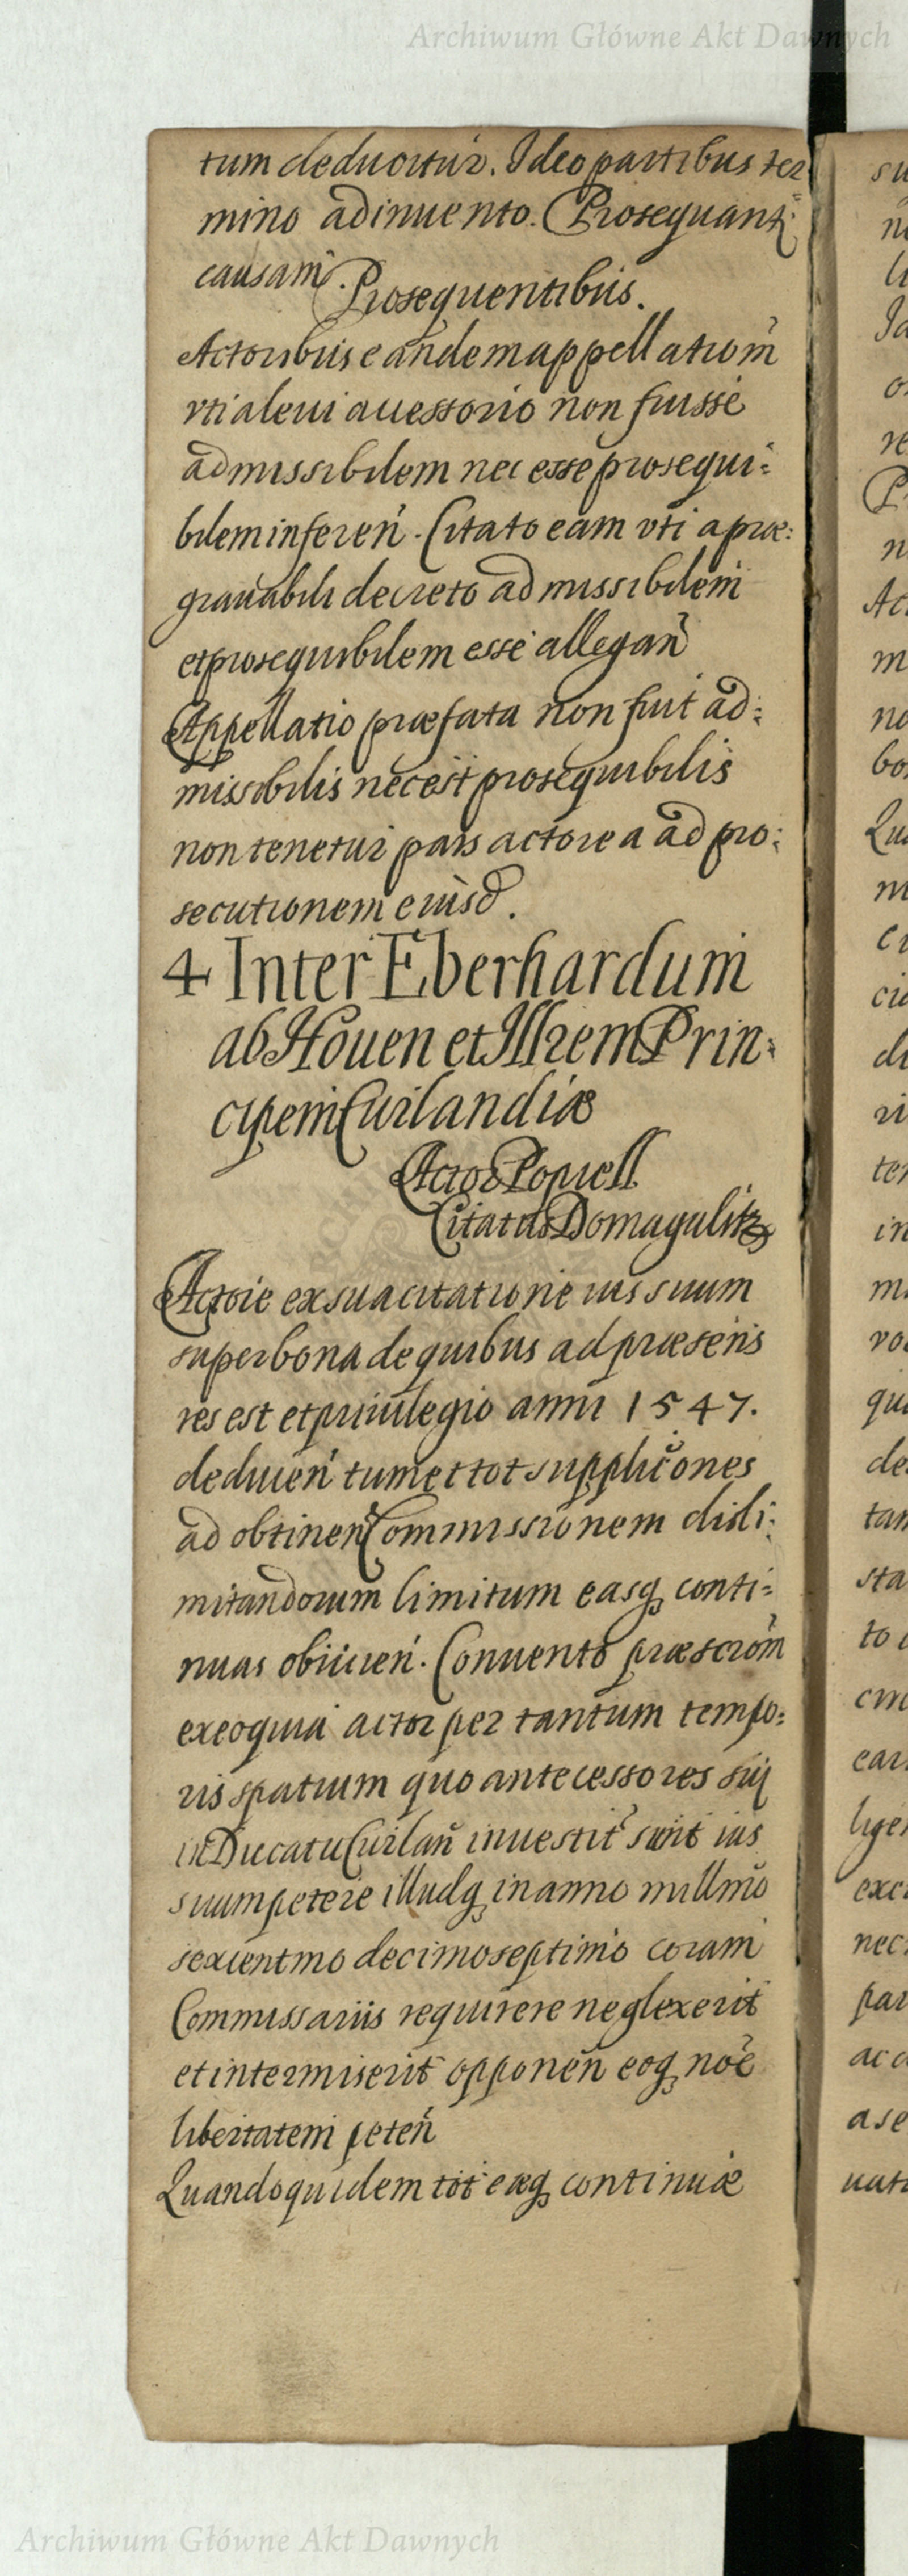 Archiwum Główne Akt Dawnych
tum deducitur. Ideo partibus ter=
mino adinuento. Prosequant
causam.
Prosequentibus.
Actoribus eandem appellatiom̃
vti a leui accessorio non fuisse
admissibilem nec esse prosequi=
bilem inferen̄. Citato eam vti a præ=
grauabili decreto admissibilem
et prosequibilem esse allegan̄
Appellatio præfata non fuit ad=
missibilis nec est prosequibilis
non tenetur pars actorea ad pro=
secutionem eiusd.
4 Inter Eberhardum
ab Houen et Illrem Prin=
cipem Curlandiæ
Actor Popiell
Citatus Domagalitz
Actore ex sua citatione ius suum
super bona de quibus ad præsens
res est et priuilegio anni 1547.
deducen̄ tum et tot supplicões
ad obtinen̄ Commissionem disli=
mitandorum limitum easq conti=
nuas obiicien̄. Conuento præscrom̃
ex eo quia actor per tantum tempo=
ris spatium quo antecessores sui
in Ducatu Curlan̄ inuestit̃ sunt ius
suum petere illudq in anno millmo
sexcentmo decimo septimo coram
Commissariis requirere neglexerit
et intermiserit opponen̄ eoq noẽ
libertatem peten̄
Quandoquidem tot eæq continuæ
Archiwum Główne Akt Dawnych